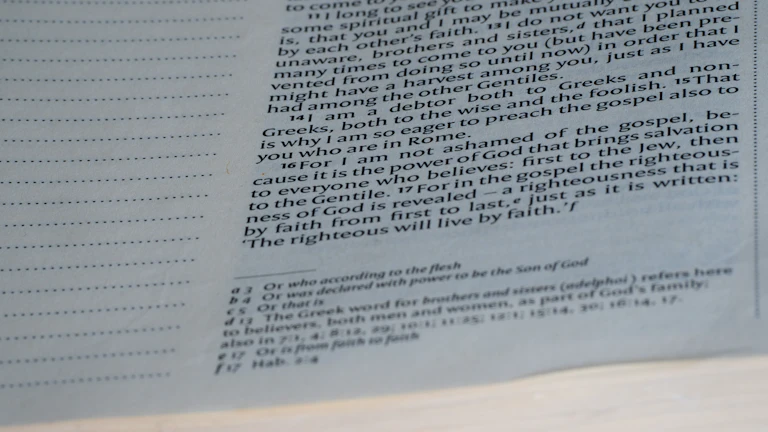 to come to y
¹¹I long to see you
some spiritual gift to make you
is, that you and I may be mutually
by each other's faith. ¹³I do not want you to
unaware, brothers and sisters,ᵈ that I planned
many times to come to you (but have been pre-
vented from doing so until now) in order that I
might have a harvest among you, just as I have
had among the other Gentiles.
¹⁴I am a debtor both to Greeks and non-
Greeks, both to the wise and the foolish. ¹⁵That
is why I am so eager to preach the gospel also to
you who are in Rome.
¹⁶For I am not ashamed of the gospel, be-
cause it is the power of God that brings salvation
to everyone who believes: first to the Jew, then
to the Gentile. ¹⁷For in the gospel the righteous-
ness of God is revealed – a righteousness that is
by faith from first to last,ᵉ just as it is written:
'The righteous will live by faith.'ᶠ
a 3 Or who according to the flesh
b 4 Or was declared with power to be the Son of God
c 5 Or that is
d 13 The Greek word for brothers and sisters (adelphoi) refers here
to believers, both men and women, as part of God's family;
also in 7:1, 4; 8:12, 29; 10:1; 11:25; 12:1; 15:14, 30; 16:14, 17.
e 17 Or is from faith to faith
f 17 Hab. 2:4